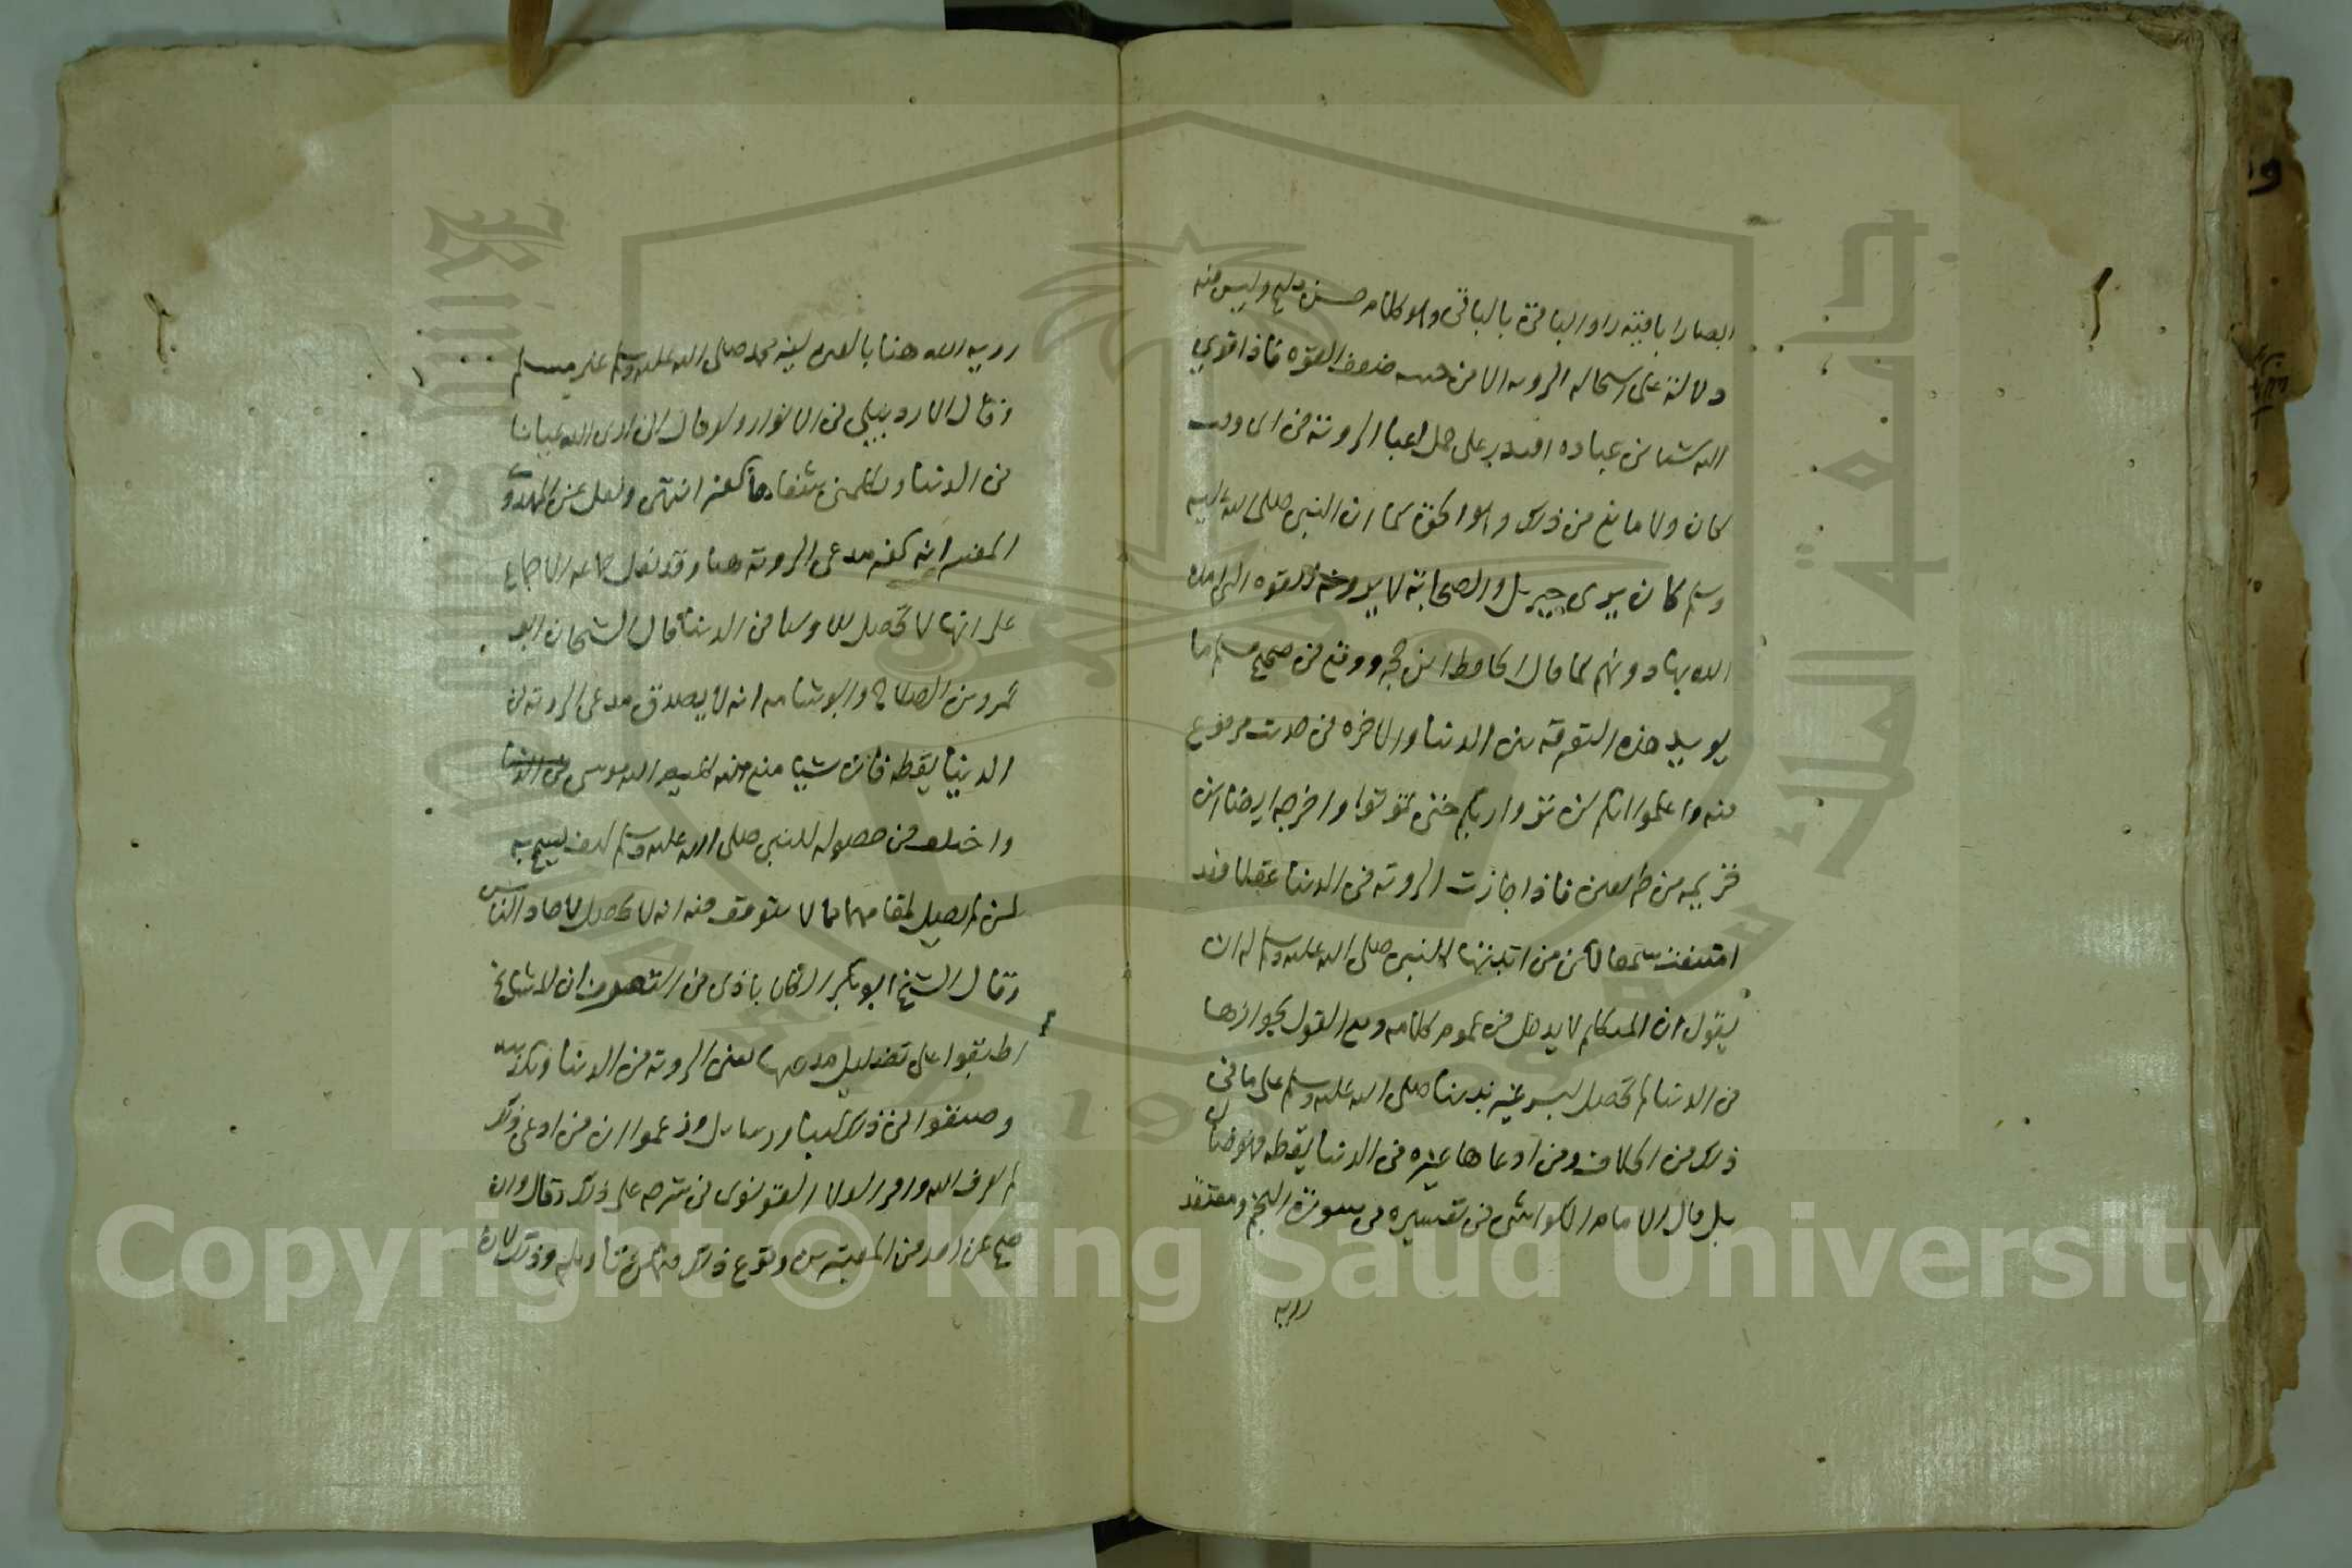 ابصارا باقية راوا الباقى بالباقى وهو كلام حسن مليح وليس فيه
دلالة على استحاله الرويه الا من حيث ضعف القوه فاذا قوى
الله من شا من عباده اقتدر على حمل اعبا الروية فى اى وقت
كان ولا مانع من ذلك والحق كما ان النبى صلى الله عليه
وسلم كان يرى جبريل والصحابة لا يرونه للقوه التى امده
الله بها دونهم كما قال الحافظ ابن حجر ووقع فى صحيح مسلم ما
يويد هذه التفرقه بين الدنيا والاخره فى حديث مرفوع
فيه واعلموا انكم لن تروا ربكم حتى تموتوا واخرجه ايضا ابن
خزيمه من طريقين فاذا جازت الروية فى الدنيا عقلا فقد
امتنعت سمعا لكن من اثبتها للنبى صلى الله عليه وسلم له ان
يقول ان المتكلم لا يدخل فى عموم كلامه ومع القول بجوازها
فى الدنيا لم تحصل لبشر غير نبينا صلى الله عليه وسلم على ما فى
ذلك من الخلاف ومن ادعاها غيره فى الدنيا يقظه فهو ضال
بل قال الامام الكواشى فى تفسيره فى سورة النجم ومعتقد
رويه
رويه الله هنا بالعين لغير محمد صلى الله عليه وسلم غير مسلم
وقال الاردبيلى فى الانوار ولو قال انى ارى الله عيانا
فى الدنيا ويكلمنى شفاها كفر انتهى ونقل عن المهدوى
المفسر انه كفر مدعى الروية هنا وقد نقل جماعه الاجماع
على انها لا تحصل للاوليا فى الدنيا قال الشيخان ابو
عمرو بن الصلاح وابو شامه انه لا يصدق مدعى الروية فى
الدنيا يقظه فان شيا منع منه كليم الله موسى
واختلف فى حصوله للنبى صلى الله عليه وسلم كيف يسمح به
لمن لم يصل لمقامهما مما لا يتوقف فيه انه لا يحصل لاحاد الناس
وقال الشيخ ابو بكر الكلاباذى فى التعرف ان المشايخ
اطبقوا على تضليل مدعيها يعنى الروية فى الدنيا وتكذيبه
وصنفوا فى ذلك كتبا ورسايل وزعموا ان من ادعى ذلك
لم يعرف الله واقر العلا القونوى فى شرحه على ذلك وقال وان
صح عن احد من المعتبرين وقوع ذلك فيمكن تاويله وذلك لان